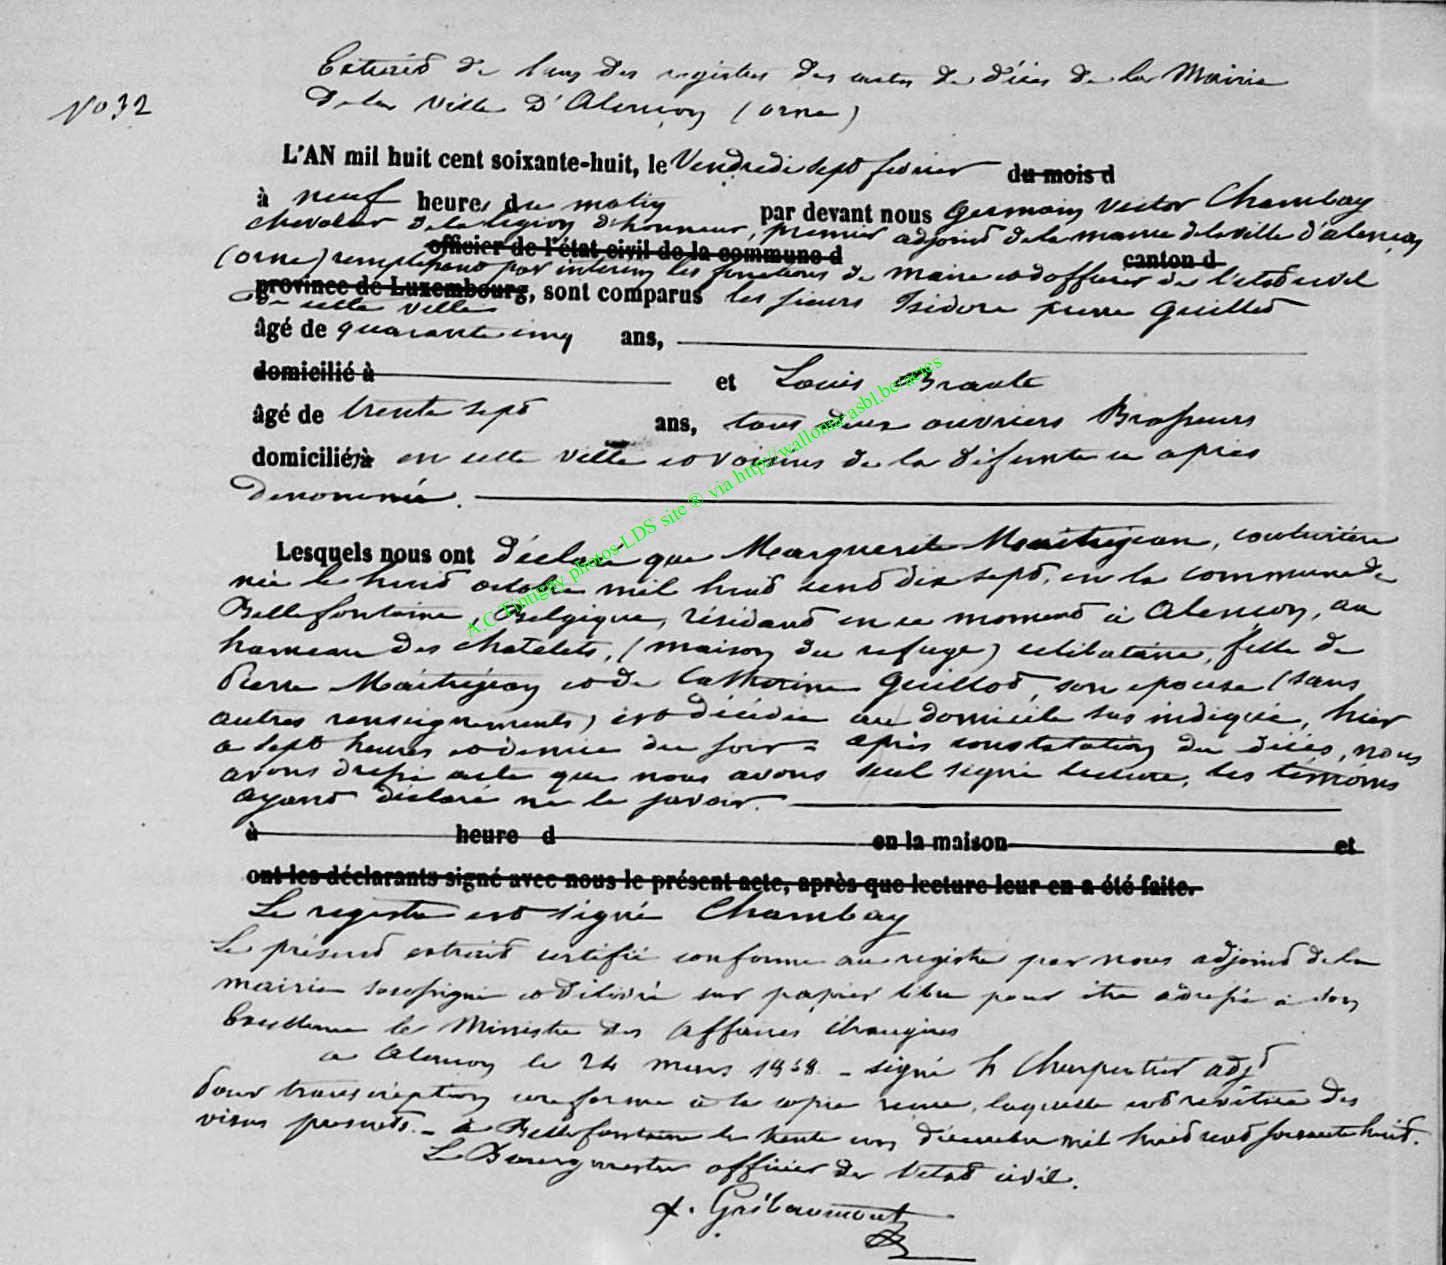 Extrait de l'un des registres des actes de décès de la Mairie
No 32
De la Ville D'Alençon (orne)
L'AN mil huit cent soixante-huit, le Vendredi sept fevrier du mois d
à neuf heures du matin par devant nous Germain Victor Chambay
chevalier de la légion d'honneur, premier adjoint de la mairie de la ville d'alençon
officier de l'état civil de la commune d canton d
(orne) remplissant par interim les fonctions de maire et d'officier de l'etat civil
province de Luxembourg, sont comparus les sieurs Isidore pierre Guillot
De cette ville
âgé de quarante cinq ans,
domicilié à et Louis Brault
âgé de trente sept ans, tous deux ouvriers Brasseurs
domiciliés à en cette ville et voisins de la défunte ci après
Denommée.
Lesquels nous ont déclaré que Marguerite Maitrejean, couturière
née le huit octobre mil huit cent dix sept, en la commune de
Bellefontaine, Belgique, résidant en ce moment à Alençon, au
hameau des chatelets, (maison du refuge) celibataire, fille de
Pierre Maitrejean et de Catherine Guillot, son epouse (sans
autres renseignements) est décédée au domicile sus indiqué, hier
a sept heures et demie du soir = après constatation du décès, nous
avons dressé acte que nous avons seul signé lecture, les témoins
ayant déclaré ne le savoir.
à heure d en la maison et
ont les déclarants signé avec nous le présent acte, après que lecture leur en a été faite.
Le registre est signé Chambay
Le présent extrait certifié conforme au registre par nous adjoint de la
mairie soussigné et délivré sur papier libre pour être adressé à Son
Excellence le Ministre des Affaires étrangères
a Alençon le 24 mars 1868. - signé h Charpentier adjt
Pour transcription conforme à la copie remise, laquelle est revêtue des
visas prescrits. - à Bellefontaine le trente un décembre mil huit cent soixante huit.
Le Bourgmestre officier de l'etat civil.
Gribaumont
A.C Tintigny photos LDS site ® via http://wallonia.asbl.be/actes